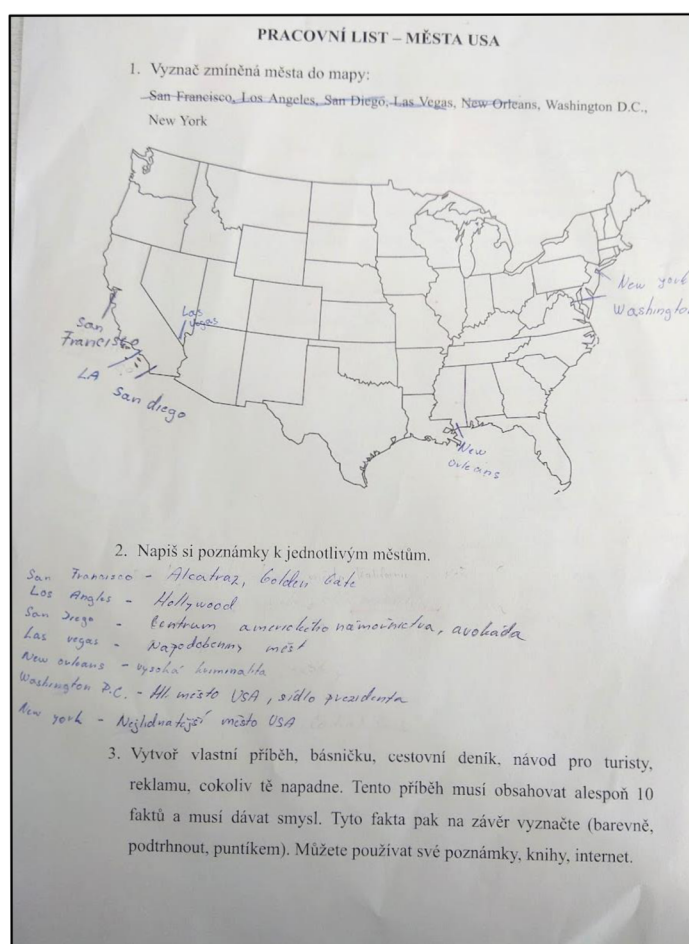 PRACOVNÍ LIST – MĚSTA USA
1. Vyznač zmíněná města do mapy:
San Francisco, Los Angeles, San Diego, Las Vegas, New Orleans, Washington D.C.,
New York
New york
Washington
Las
vegas
San
Francisco
LA
San diego
New
Orleans
2. Napiš si poznámky k jednotlivým městům.
San Francisco - Alcatraz, Golden Gate
Los Angles - Hollywood
San Diego - Centrum amerického námořnictva, avokáda
Las vegas - Napodobenny měst
New orleans - vysoká kriminalita
Washington D.C. - Hl. město USA, sídlo prezidenta
New york - Nejlidnatější město USA
3. Vytvoř vlastní příběh, básničku, cestovní deník, návod pro turisty,
reklamu, cokoliv tě napadne. Tento příběh musí obsahovat alespoň 10
faktů a musí dávat smysl. Tyto fakta pak na závěr vyznačte (barevně,
podtrhnout, puntíkem). Můžete používat své poznámky, knihy, internet.